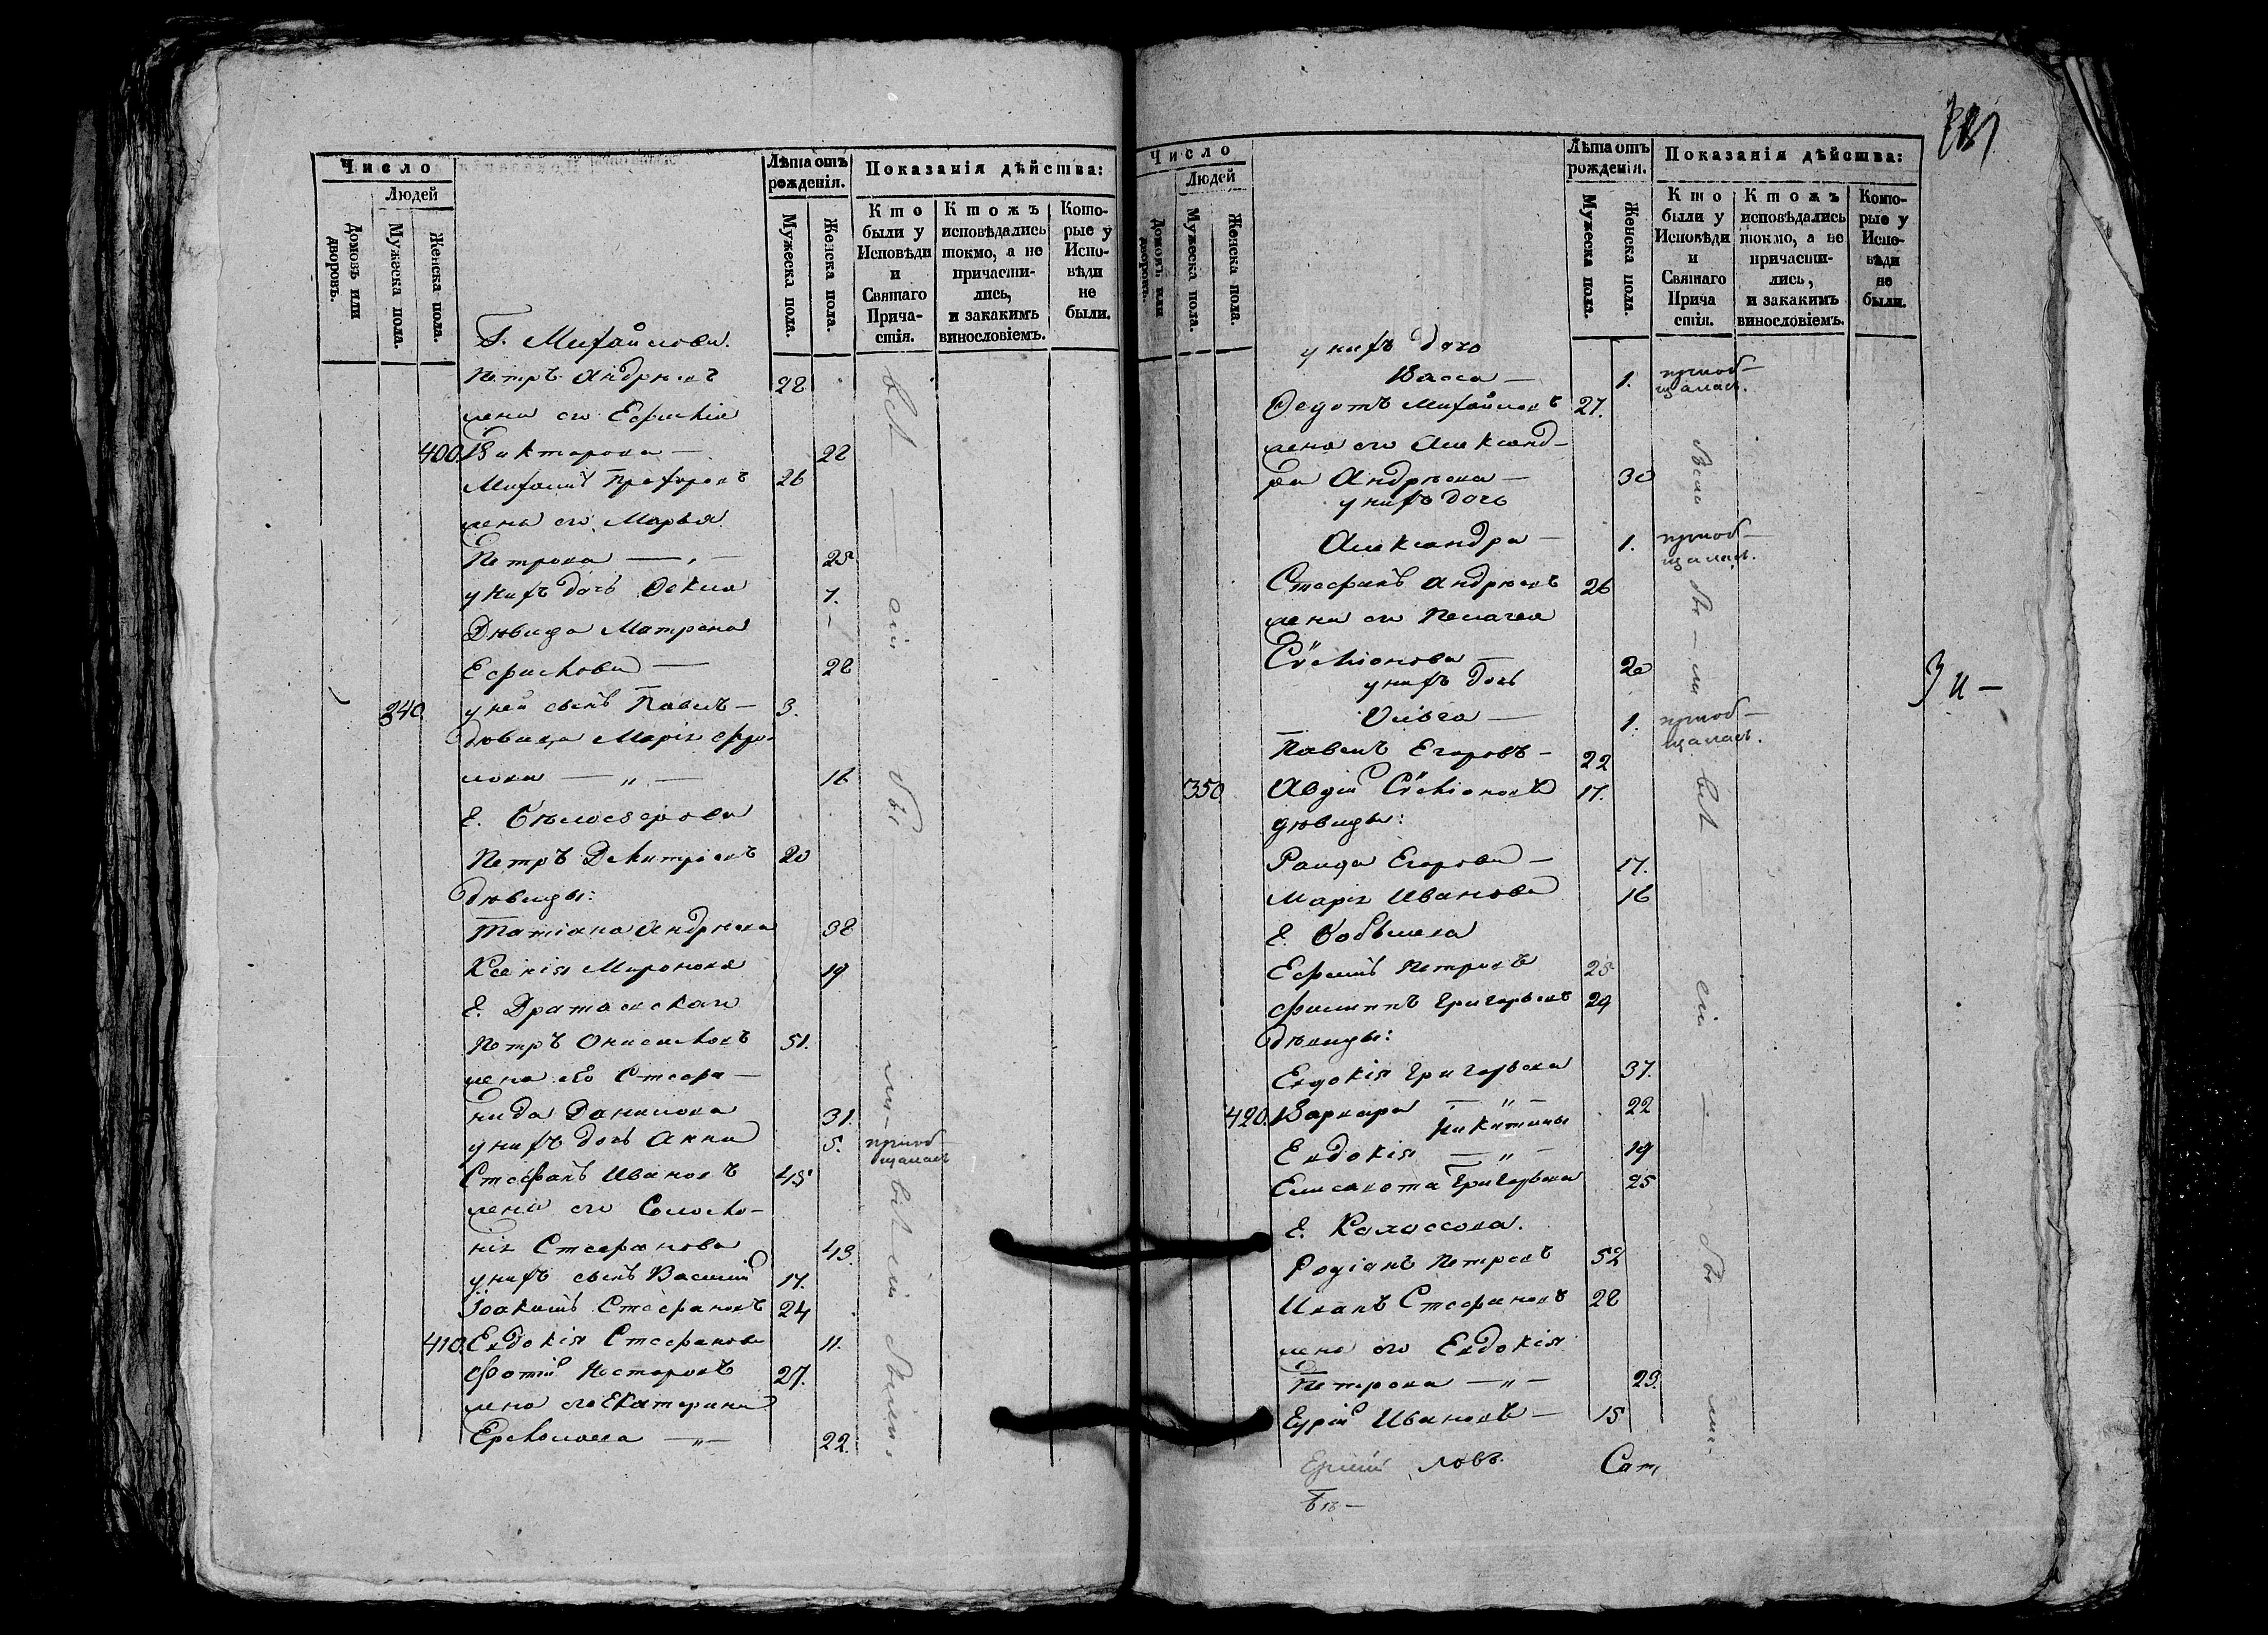 Число
Людей
Домовъ или дворовъ.
Мужеска пола.
Женска пола.
Лѣта отъ рожденія.
Мужеска пола.
Женска пола.
Показанія дѣйства:
Кто были у Исповѣди и Святаго Причастія.
Ктожъ исповѣдались токмо, а не причастились, и закакимъ винословіемъ.
Которые у Исповѣди не были.
Г. Михайлови.
Петръ Андрѣевъ 28
жена его Ефимія
400. Викторова — 22
Михаилъ Прохоровъ 26
жена его Марья
Петрова — 25
у нихъ дочь Фекла 1.
Дѣвица Матрона
Ефимова — 28
340 у ней сынъ Павелъ — 3.
дѣвица Марія Фро-
лова — „ — 16
Е. Бѣлосерова
Петръ Дмитріевъ 20
дѣвицы:
Татіана Андрѣева 38
Ксенія Миронова 19
Е. Братовская
Петръ Онисимовъ 51.
жена его Стефа—
нида Данилова 31.
у нихъ дочь Анна 5. приоб-
щалась
Стефанъ Ивановъ 45
жена его Соломо-
нія Стефанова 43.
у нихъ сынъ Василій 17.
Іоакимъ Стефановъ 24
410. Евдокія Стефанова 11.
Фотій Несторовъ 27.
жена его Екатерина
Ермолаева — „ — 22.
Число
Людей
Домовъ или дворовъ.
Мужеска пола.
Женска пола.
Лѣта отъ рожденія.
Мужеска пола.
Женска пола.
Показанія дѣйства:
Кто были у Исповѣди и Святаго Прича стія.
Ктожъ исповѣдались токмо, а не причастились, и закакимъ винословіемъ.
Которые у Исповѣди не были.
у нихъ дочь
Васса — 1. приоб-
щалась.
Федотъ Михайловъ 27.
жена его Александ-
ра Андрѣева — 30
у нихъ дочь
Александра — 1. приоб-
щалась.
Стефанъ Андрѣевъ 26
жена его Пелагея
Симіонова — 20
у нихъ дочь
Ольга — 1. приоб-
щалась.
Павелъ Егоровъ — 22
350 Авдій Симіоновъ 17.
дѣвицы:
Раида Егорова — 17.
Марія Иванова 16
Е. Кобылева
Ефимъ Петровъ 25
Филиппъ Григорьевъ 29
дѣвицы:
Евдокія Григорьева 37.
420. Варвара — „ — 22
Никитины
Евдокія — „ — 19
Елисавета Григорьева 25
Е. Колоссова.
Родіонъ Петровъ 52
Иванъ Стефановъ 28
жена его Евдокія
Петрова — „ — 23.
Гурій Ивановъ — 15